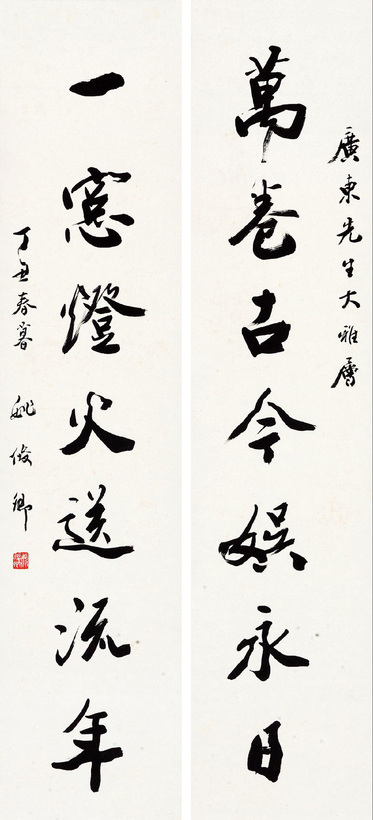 廣東先生大雅屬
萬卷古今娛永日
一窻燈火送流年
丁丑春暮 姚俊卿